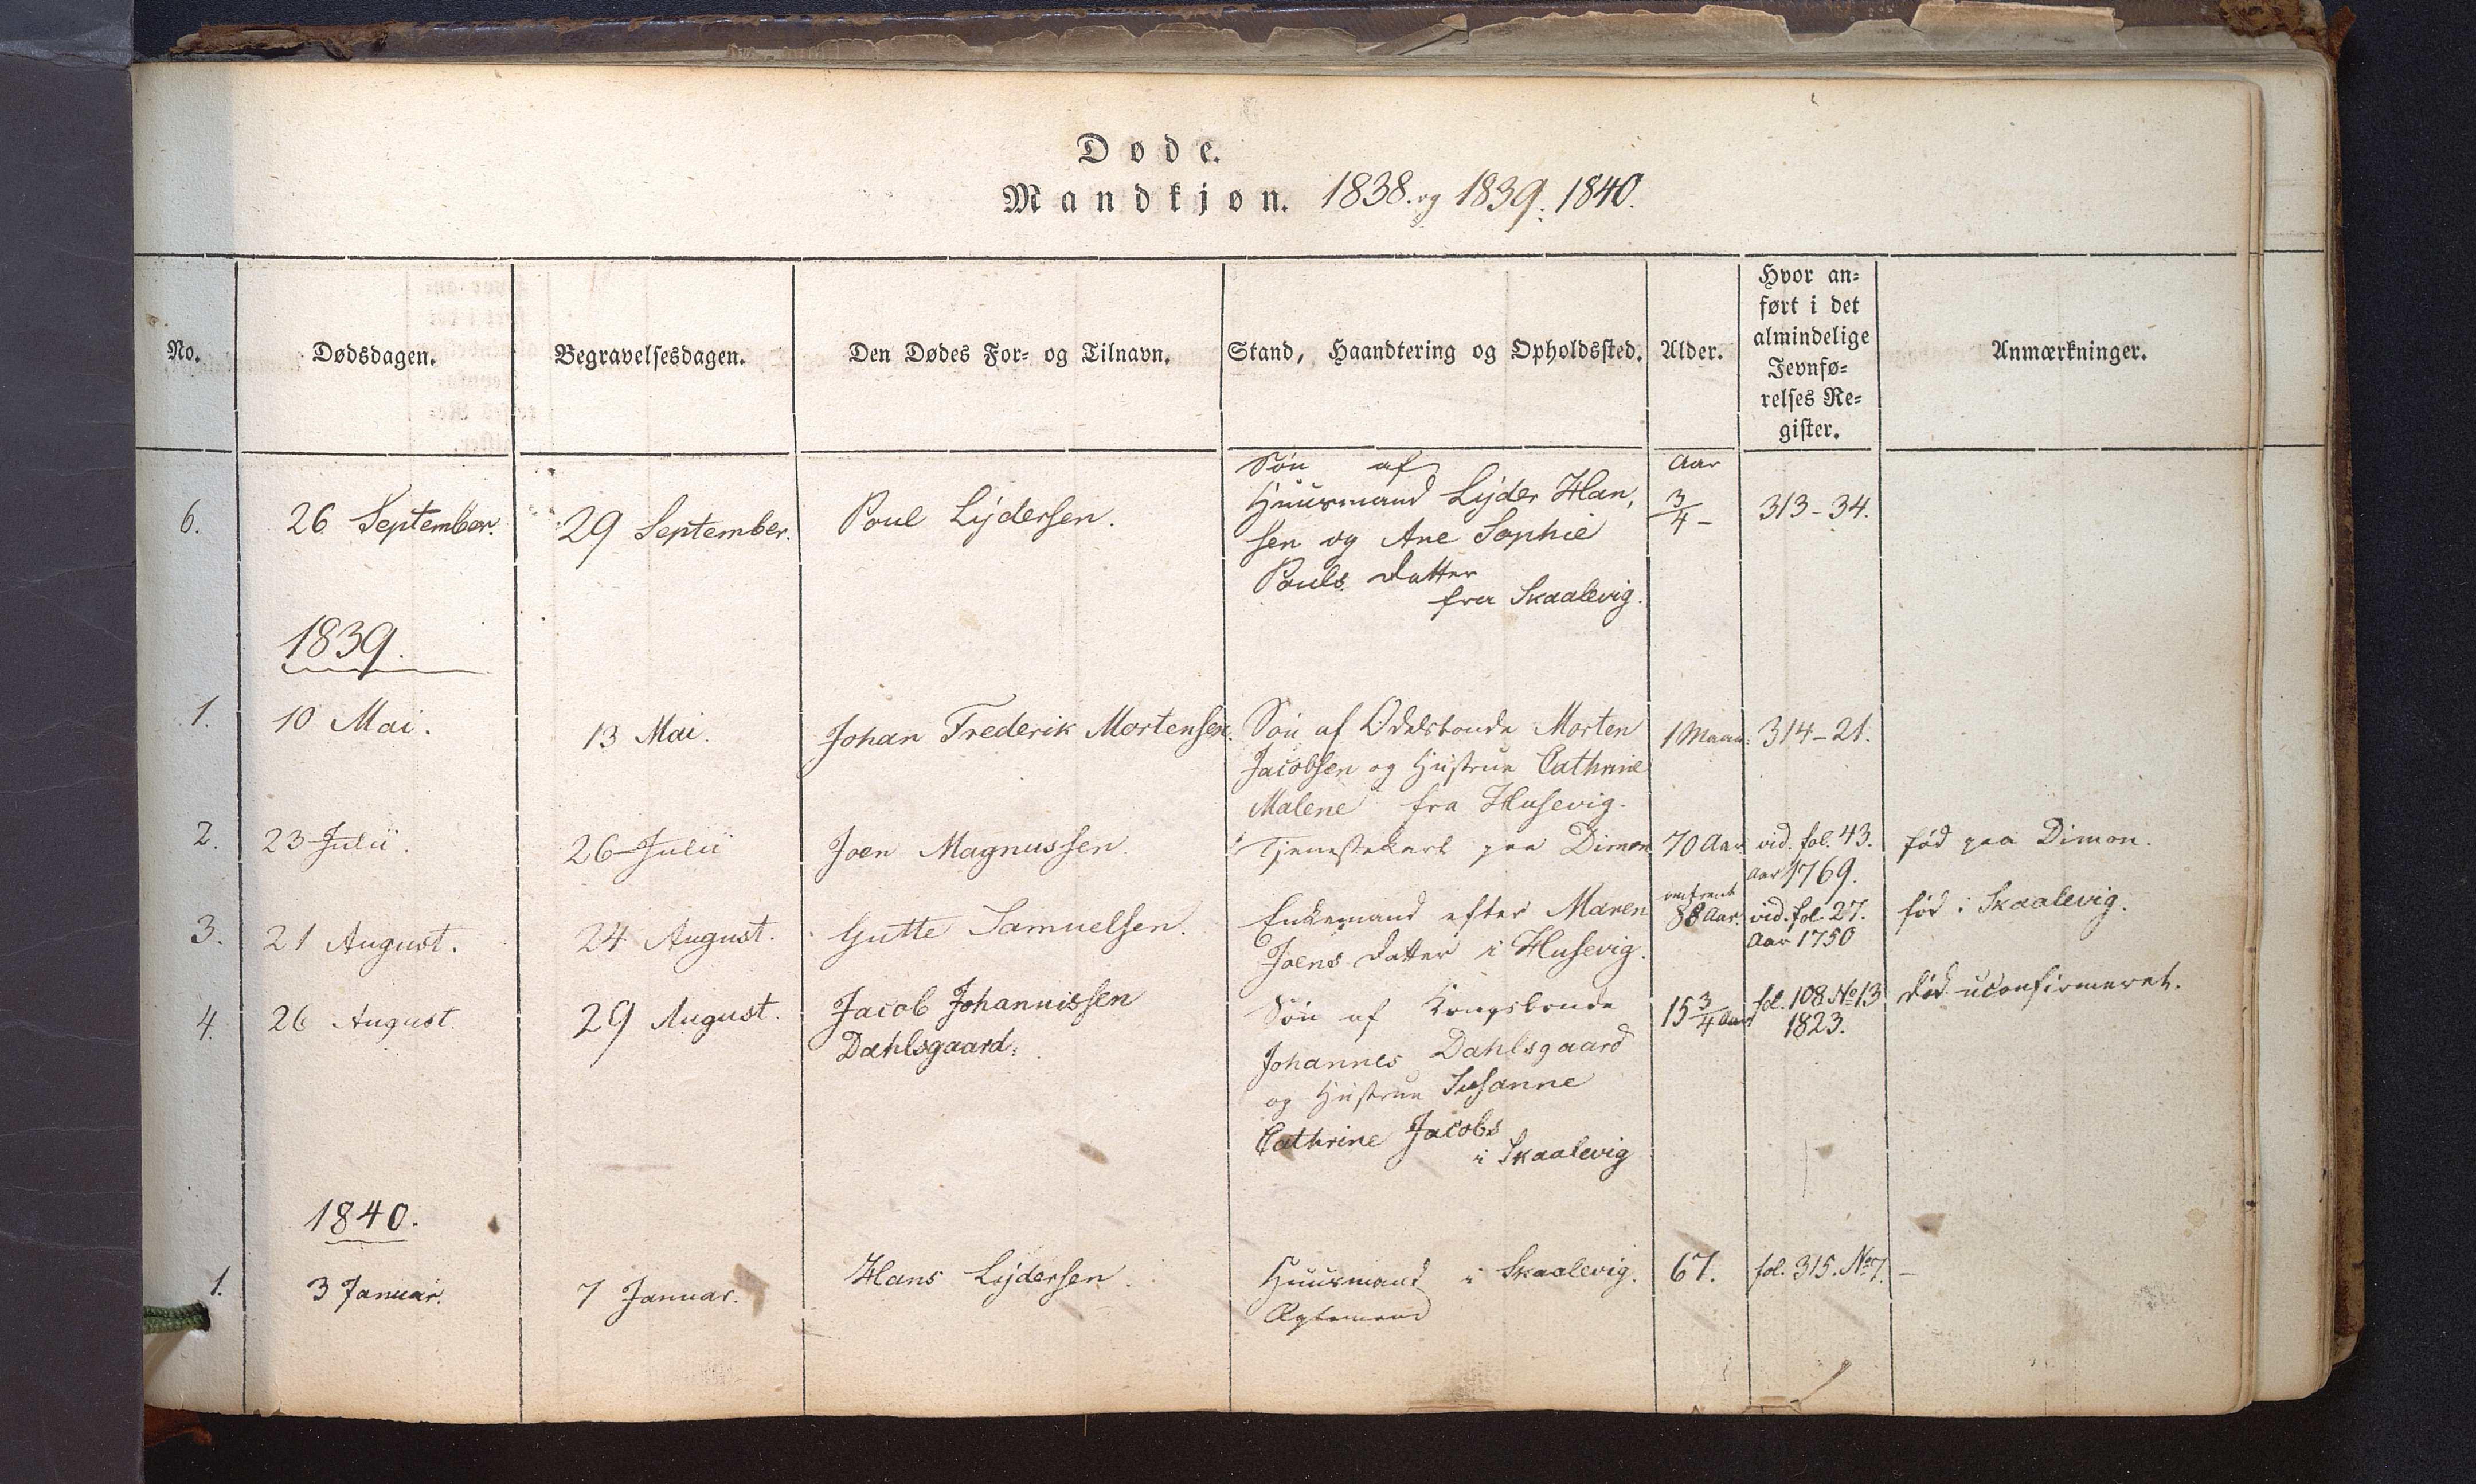 Døde.
Mandkjøn. 1838. og 1839. 1840.
No.
Dødsdagen.
Begravelsesdagen.
Den Dødes For- og Tilnavn.
Stand, Haandtering og Opholdssted.
Alder.
Hvor an-
ført i det
almindelige
Jevnfø-
relses Re-
gister.
Anmærkninger.
6.
26 September.
29 September.
Poul Lydersen.
Søn af
Huusmand Lyder Han,
sen og Ane Sophie
Pouls datter
fra Skaalevig.
Aar
3/4 -
313-34.
1839.
1.
10 Mai.
13 Mai.
Johan Frederik Mortensen.
Søn af Odelsbonde Morten
Jacobsen og Hustrue Cathrine
Malene fra Husevig.
1 Maan.
314-21.
2.
23 Julii.
26 Julii
Joen Magnussen.
Tjenestekarl paa Dimon
70 Aar
vid. fol. 43.
Aar 1769.
fød paa Dimon.
3.
21 August.
24 August.
Gutte Samuelsen.
Enkemand efter Maren
Joens datter i Husevig.
omtrent
88 Aar.
vid. fol. 27.
Aar 1750
fød i Skaalevig.
4.
26 August.
29 August.
Jacob Johannissen
Dahlsgaard.
Søn af Kongsbonde
Johannes Dahlsgaard
og Hustrue Susanne
Cathrine Jacobs
i Skaalevig
15 3/4 Aar
fol. 108 No 13
1823.
død uconfirmeret.
1840.
1.
3 Januar.
7 Januar.
Hans Lydersen.
Huusmand i Skaalevig.
Ægtemand
67.
fol. 315. No 7.
-